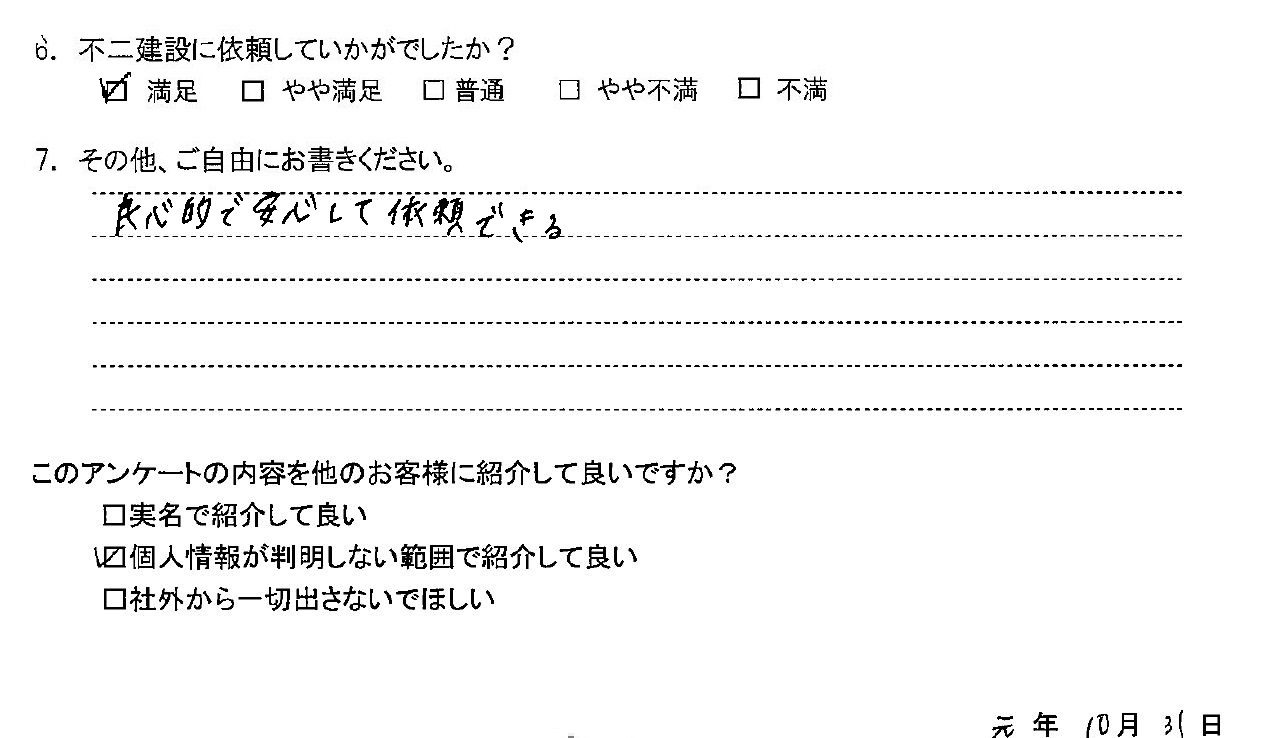 6. 不二建設に依頼していかがでしたか？
☑ 満足 □ やや満足 □ 普通 □ やや不満 □ 不満
7. その他、ご自由にお書きください。
良心的で安心して依頼できる
このアンケートの内容を他のお客様に紹介して良いですか？
□実名で紹介して良い
☑個人情報が判明しない範囲で紹介して良い
□社外から一切出さないでほしい
元年 10月 31日